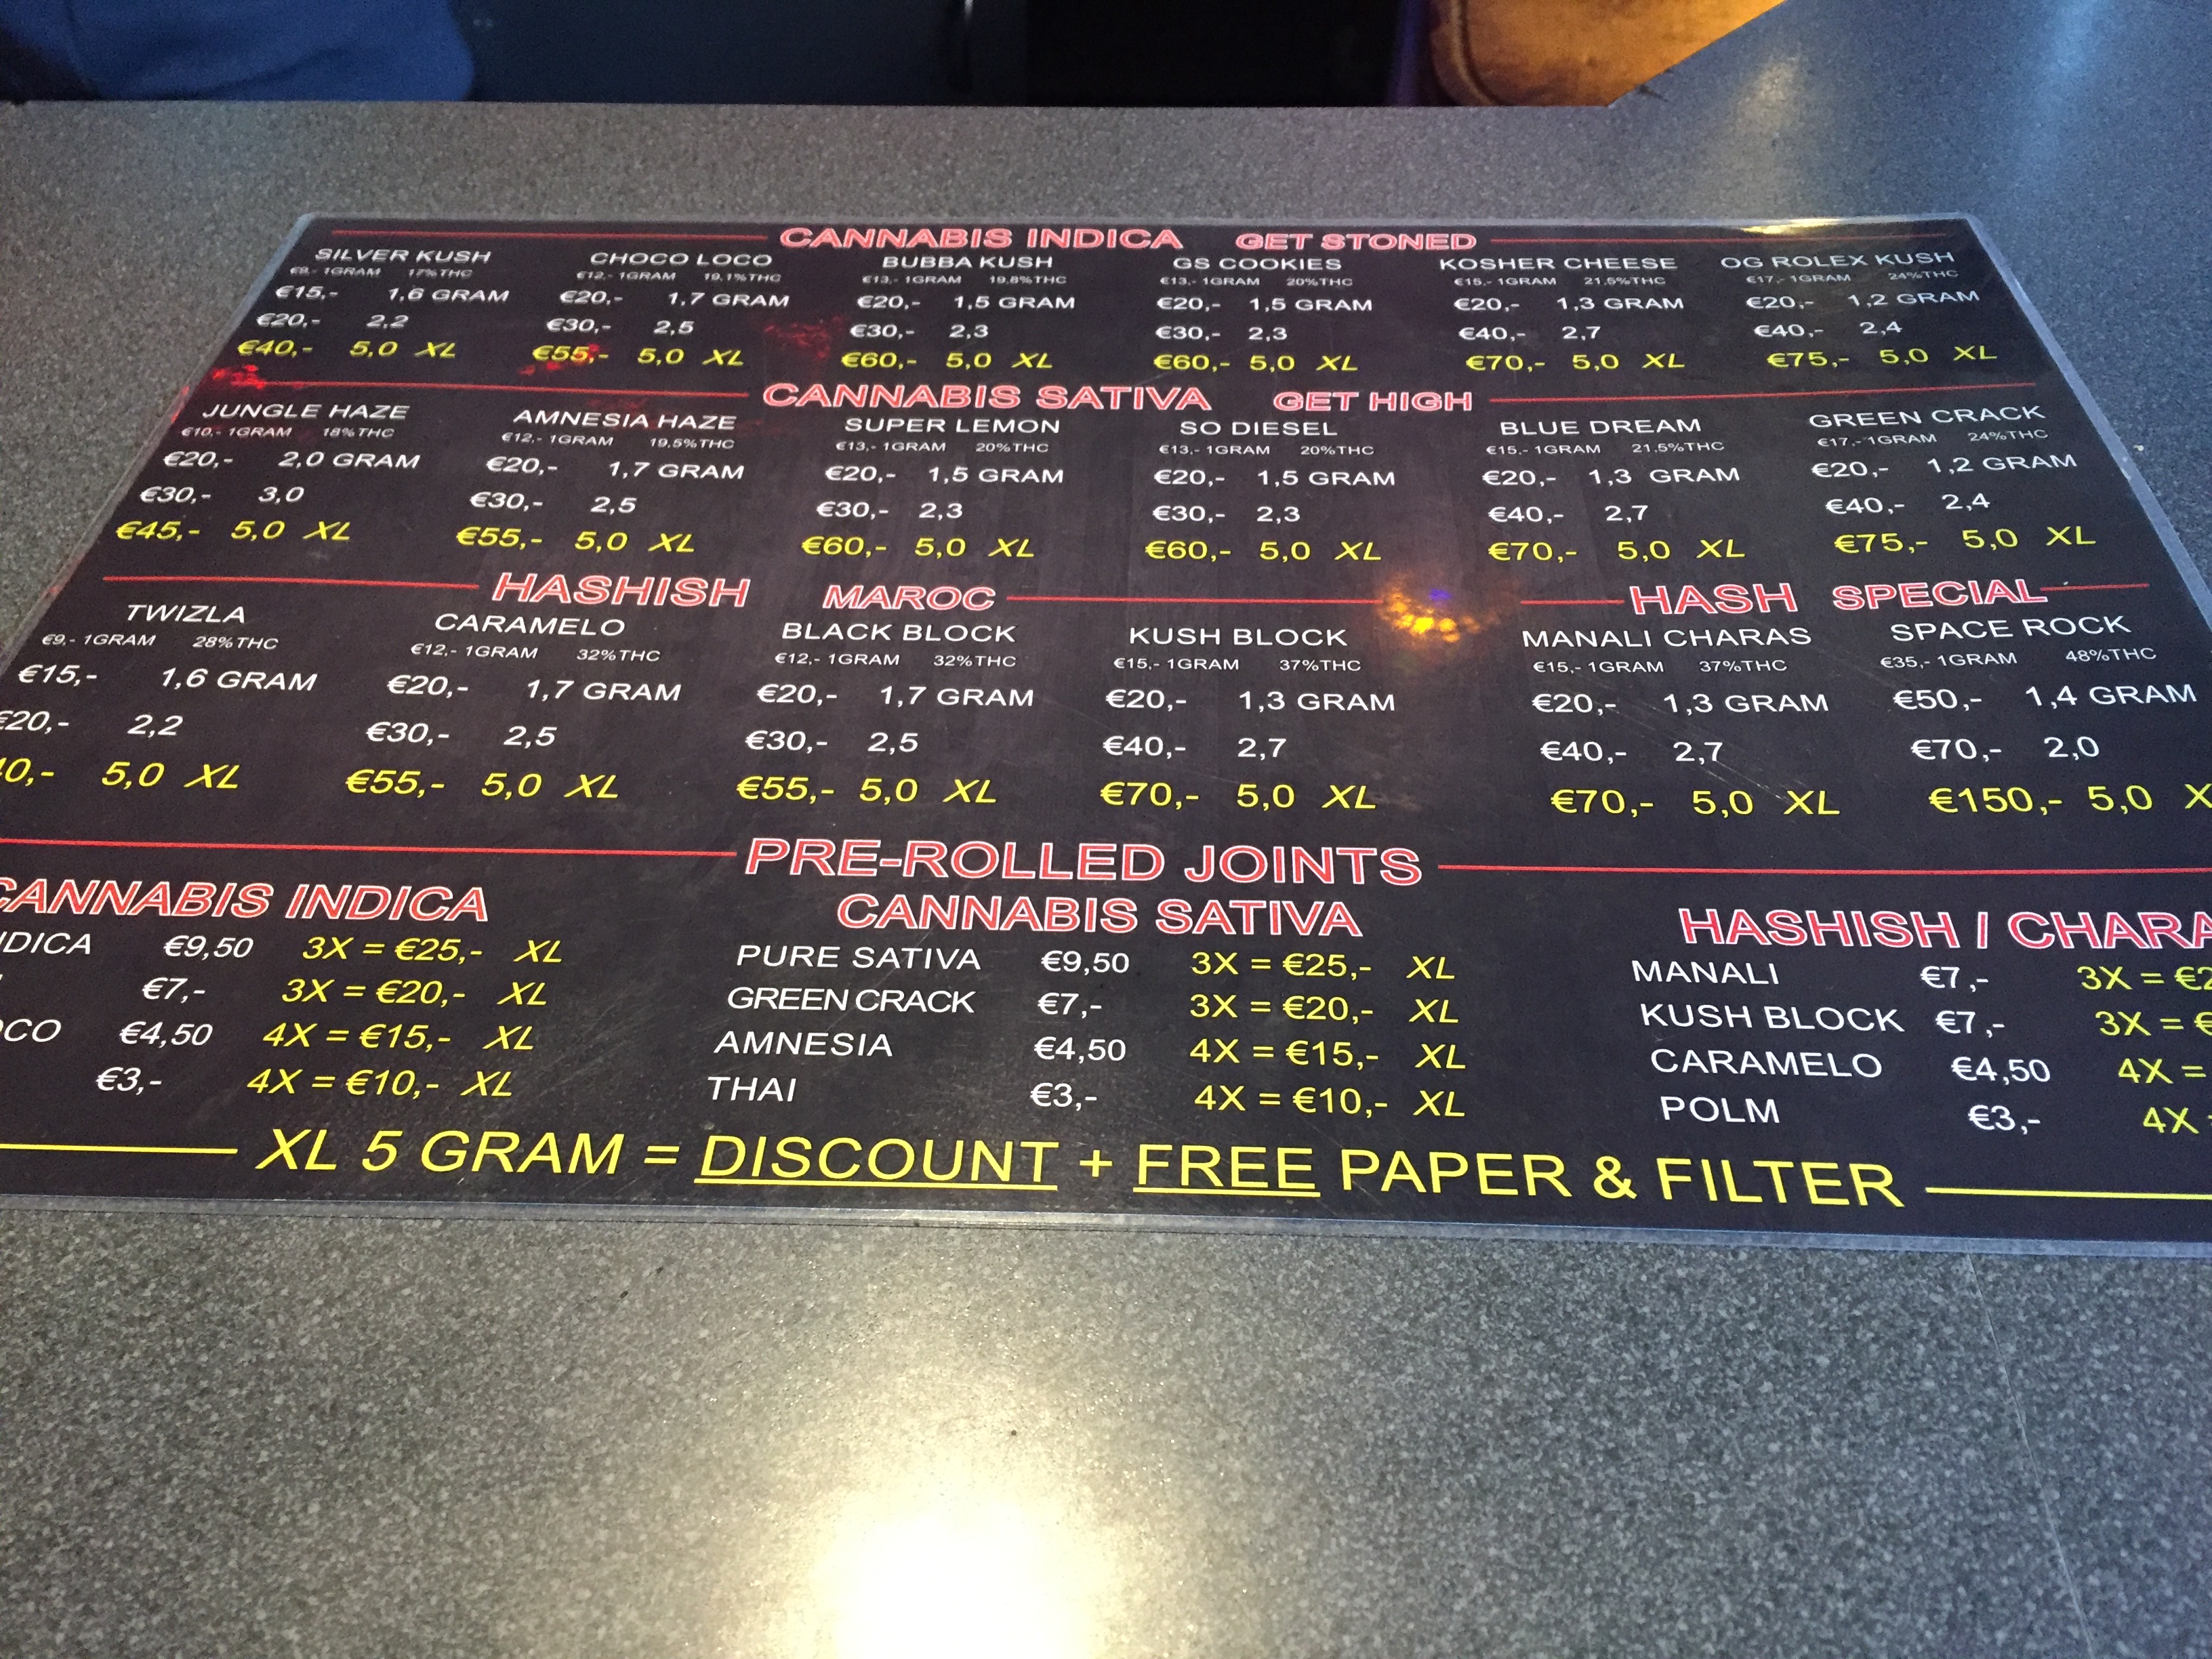 CANNABIS INDICA GET STONED
SILVER KUSH CHOCO LOCO BUBBA KUSH GS COOKIES KOSHER CHEESE OG ROLEX KUSH
€9,- 1GRAM 17%THC €12,- 1GRAM 19.1%THC €13,- 1GRAM 19.8%THC €13,- 1GRAM 20%THC €15,- 1GRAM 21.5%THC €17,- 1GRAM 24%THC
€15,- 1,6 GRAM €20,- 1,7 GRAM €20,- 1,5 GRAM €20,- 1,5 GRAM €20,- 1,3 GRAM €20,- 1,2 GRAM
€20,- 2,2 €30,- 2,5 €30,- 2,3 €30,- 2,3 €40,- 2,7 €40,- 2,4
€40,- 5,0 XL €55,- 5,0 XL €60,- 5,0 XL €60,- 5,0 XL €70,- 5,0 XL €75,- 5,0 XL
CANNABIS SATIVA GET HIGH
JUNGLE HAZE AMNESIA HAZE SUPER LEMON SO DIESEL BLUE DREAM GREEN CRACK
€10,- 1GRAM 18%THC €12,- 1GRAM 19.5%THC €13,- 1GRAM 20%THC €13,- 1GRAM 20%THC €15,- 1GRAM 21.5%THC €17,- 1GRAM 24%THC
€20,- 2,0 GRAM €20,- 1,7 GRAM €20,- 1,5 GRAM €20,- 1,5 GRAM €20,- 1,3 GRAM €20,- 1,2 GRAM
€30,- 3,0 €30,- 2,5 €30,- 2,3 €30,- 2,3 €40,- 2,7 €40,- 2,4
€45,- 5,0 XL €55,- 5,0 XL €60,- 5,0 XL €60,- 5,0 XL €70,- 5,0 XL €75,- 5,0 XL
HASHISH MAROC HASH SPECIAL
TWIZLA CARAMELO BLACK BLOCK KUSH BLOCK MANALI CHARAS SPACE ROCK
€9,- 1GRAM 28%THC €12,- 1GRAM 32%THC €12,- 1GRAM 32%THC €15,- 1GRAM 37%THC €15,- 1GRAM 37%THC €35,- 1GRAM 48%THC
€15,- 1,6 GRAM €20,- 1,7 GRAM €20,- 1,7 GRAM €20,- 1,3 GRAM €20,- 1,3 GRAM €50,- 1,4 GRAM
€20,- 2,2 €30,- 2,5 €30,- 2,5 €40,- 2,7 €40,- 2,7 €70,- 2,0
0,- 5,0 XL €55,- 5,0 XL €55,- 5,0 XL €70,- 5,0 XL €70,- 5,0 XL €150,- 5,0 X
PRE-ROLLED JOINTS
CANNABIS INDICA CANNABIS SATIVA HASHISH / CHARA
NDICA €9,50 3X = €25,- XL PURE SATIVA €9,50 3X = €25,- XL MANALI €7,- 3X = €2
€7,- 3X = €20,- XL GREEN CRACK €7,- 3X = €20,- XL KUSH BLOCK €7,- 3X = €
OCO €4,50 4X = €15,- XL AMNESIA €4,50 4X = €15,- XL CARAMELO €4,50 4X =
€3,- 4X = €10,- XL THAI €3,- 4X = €10,- XL POLM €3,- 4X
XL 5 GRAM = DISCOUNT + FREE PAPER & FILTER